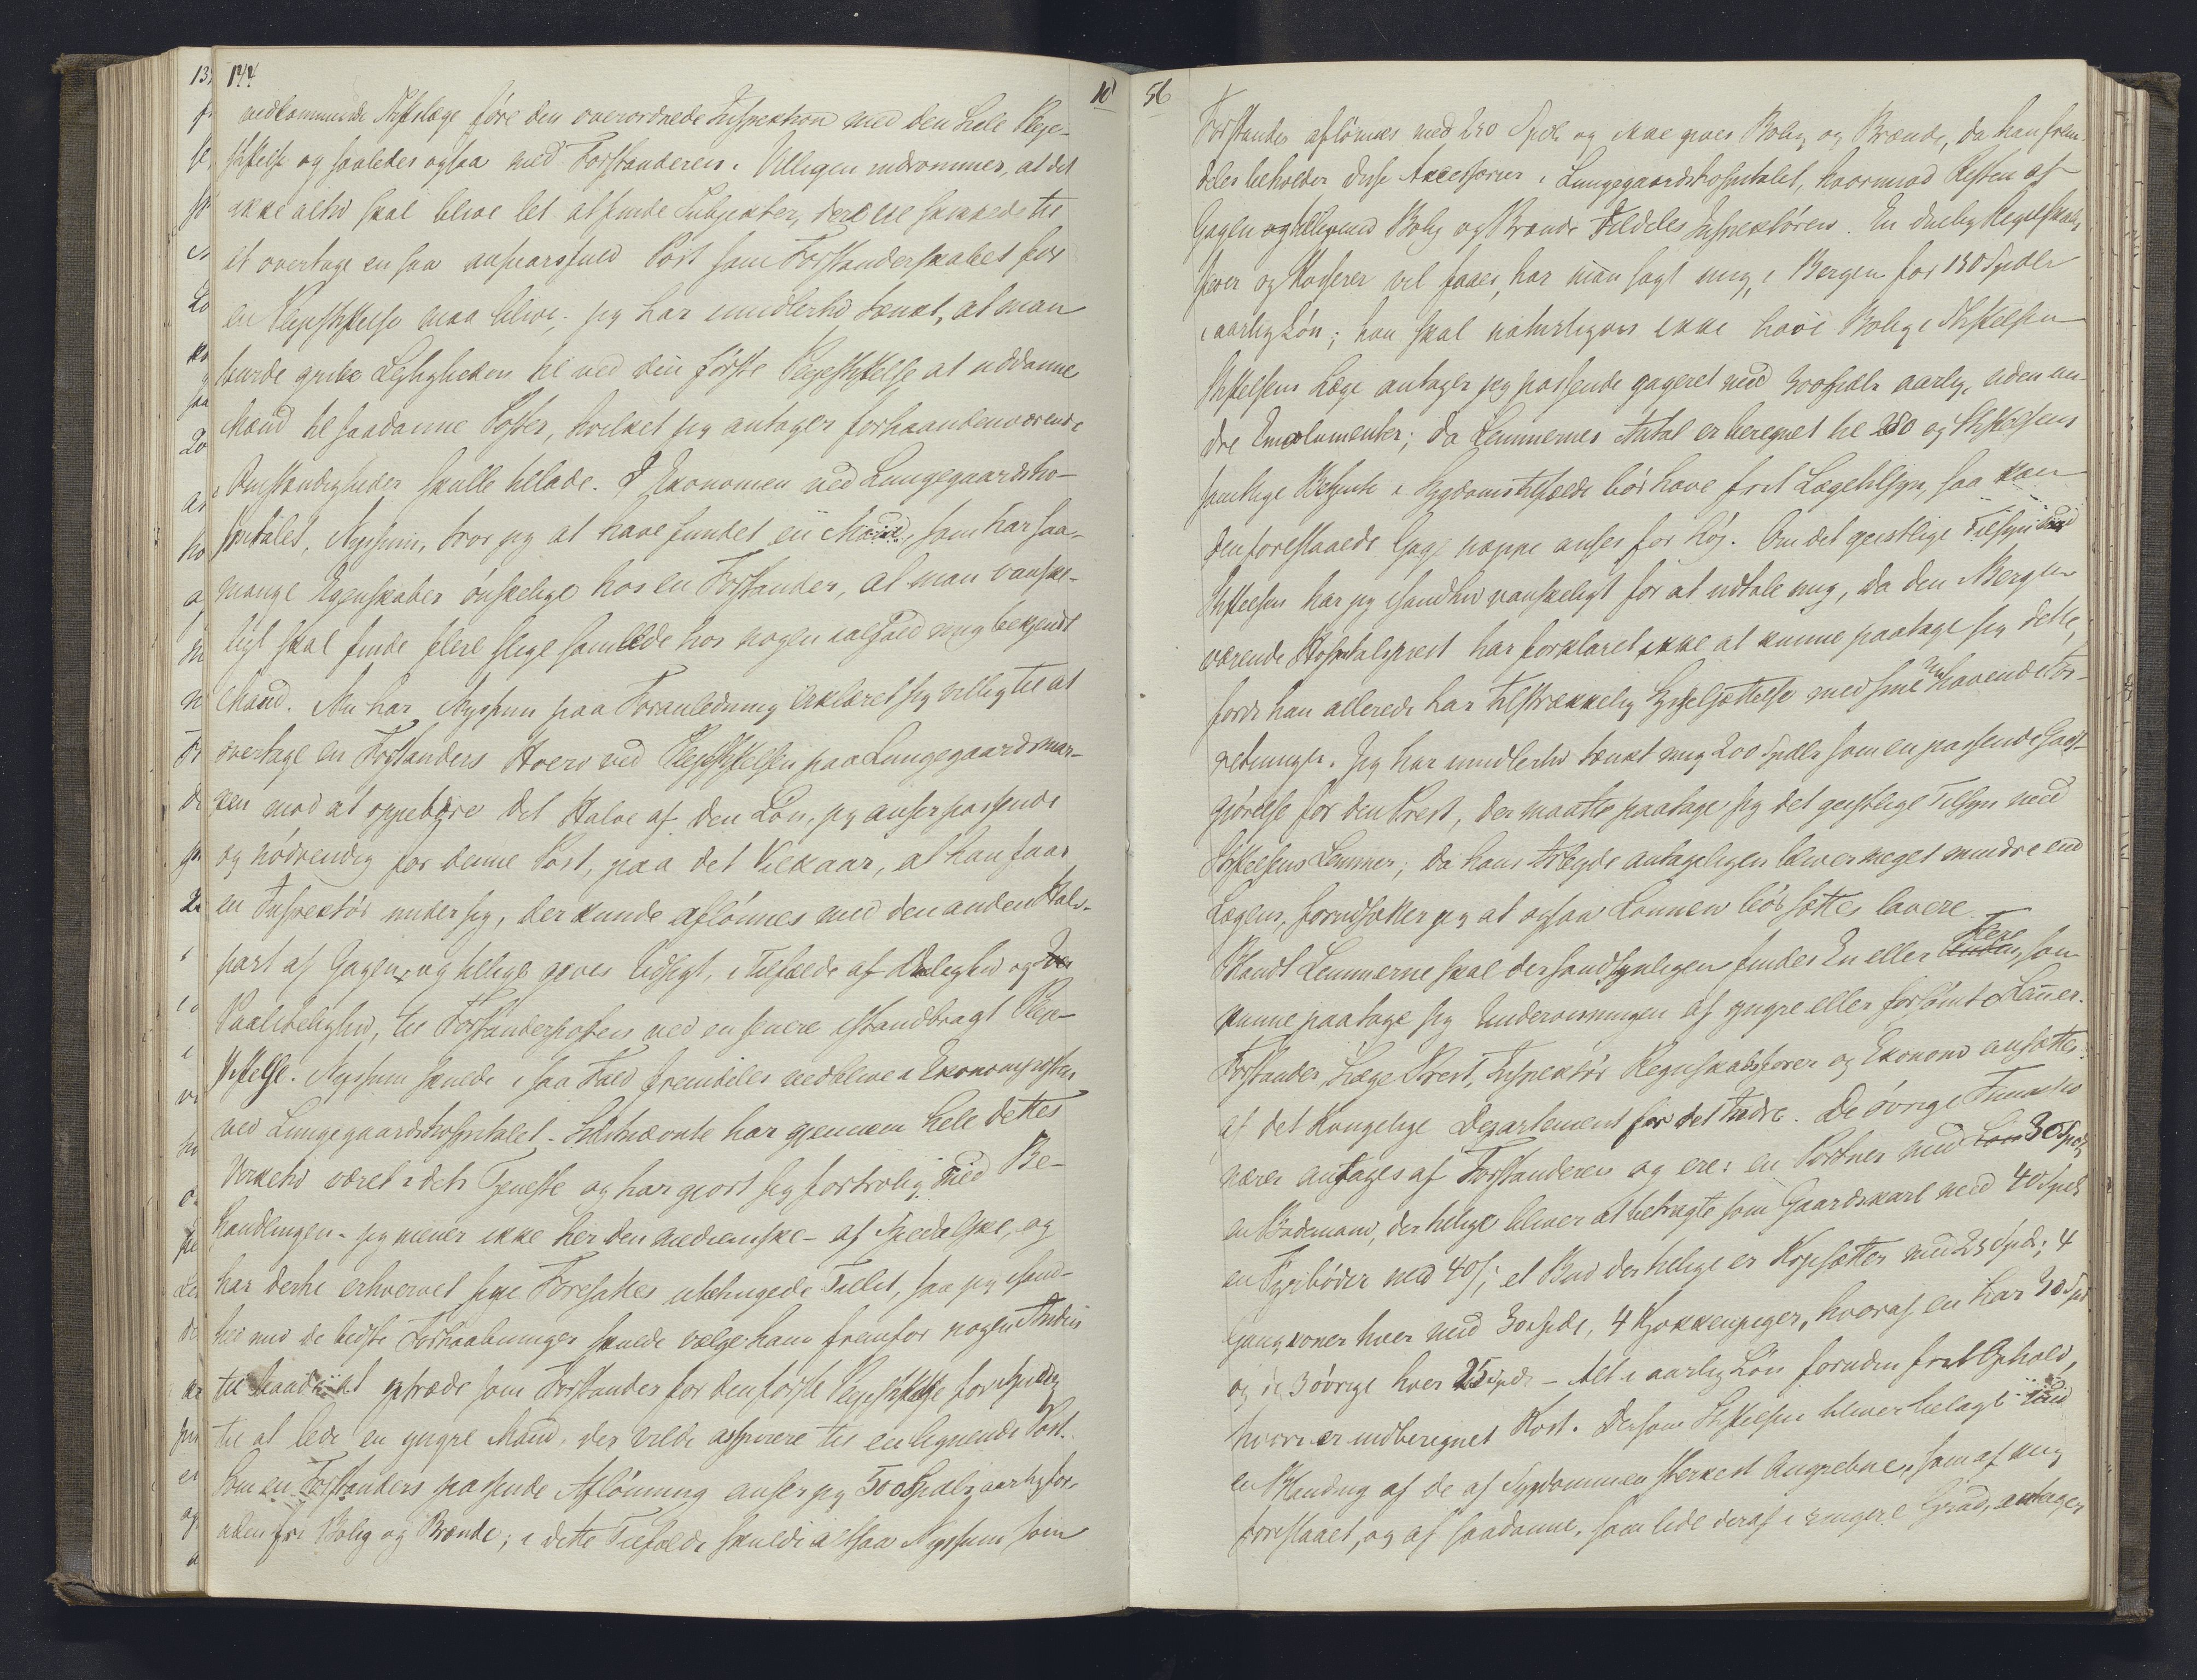 144
vedkommende Stiftslæge føre den overordnede Inspektion med den hele Pleje-
stiftelse og saaledes ogsaa med Forstanderen. Villigen indrømmer, at det
ikke altid skal blive let at finde Subjekter, der ere skikkede til
at overtage en saa ansvarsfuld Post som Forstanderskabet for
en Plejestiftelse maa blive; jeg har imidlertid tænkt, at man
burde gribe Leiligheden til ved den første Plejestiftelse at uddanne
Mænd til saadanne Poster, hvilket jeg antager forhaandenværende
Omstændigheder skulle tillade. I Ekonomen ved Lungegaardsho-
spitalet, Nyssum, tror jeg at have fundet en Mand, som har saa
mange Egenskaber ønskelige hos en Forstander, at man vanske-
ligt skal finde flere slige samlede hos nogen ialfald mig bekjendt
Mand. Nu har Nyssum paa Foranledning erklæret sig villig til at
overtage en Forstanders Hverv ved Plejestiftelsen paa Lungegaardsmar-
ken mod at oppebære det Halve af den Løn, jeg anser passende
og nødvendig for denne Post, paa det Vilkaar, at han faar
en Inspektør under sig, der kunde aflønnes med den anden Halv-
part af Gagen, og tillige gives Udsigt, i Tilfælde af Duelighed og
Paalidelighed, til Forstanderposten ved en senere istandbragt Pleje-
stiftelse. Nyssum skulde i saa Fald fremdeles vedblive i Ekonomposten
ved Lungegaardshospitalet. Sidstnævnte har gjennem hele dettes
Virketid været i dets Tjeneste og har gjort sig fortrolig med Be-
handlingen - jeg mener ikke her den medicinske - af Spedalske, og
har dertil erhvervet sine Foresattes udelugede Tillid, saa jeg isand-
hed med de bedste Forhaabninger skulde vælge ham fremfor nogen Anden
til saavidt at optræde som Forstander for den første Plejestiftelse for Spedsk
til at lede en yngre Mand, der vilde aspirere til en lignende Post.
Som en Forstanders passende Aflønning anser jeg 500 Spdlr aarlig for-
uden fri Bolig og Brænde; i dette Tilfælde skulde altsaa Nyssum som
10
56
Forstander aflønnes med 250 Spdl. og ikke gives Bolig og Brænde, da han frem-
deles beholder disse Accessorier i Lungegaardshospitalet, hvorimod Resten af
Gagen og tilligemed Bolig og Brænde tildeles Inspektøren. En duelig Regnskabs-
fører og Kasserer vil faaes, har man sagt mig, i Bergen for 150 Spdlr
i aarlig Løn; han skal naturligvis ikke have Bolig i Stiftelsen
Stiftelsens Læge antager jeg passende gageret med 300 Spdlr aarlig, uden an-
dre Emolumenter; da Lemmernes Antal er beregnet til 280 og Stiftelsens
samtlige Betjente i Sygdomstilfælde bør have frit Lægetilsyn, saa kan
den foreslaaede Gage neppe anses for høj. Om det geistlige Tilsyn med
Stiftelsen har jeg isandhed vanskeligt for at udtale mig, da den i Bergen
værende Hospitalsprest har forklaret ikke at kunne paatage sig dette,
fordi han allerede har tilstrækkelig Sysselsættelse med sine nu havende For-
retninger. Jeg har imidlertid tænkt mig 200 Spdlr som en passende Godt-
gjørelse for den Prest, der maatte paatage sig det geistlige Tilsyn med
Stiftelsens Lemmer; da hans Arbejde antageligen bliver meget mindre end
Lægens, forudsætter jeg at ogsaa Lønnen bør sættes lavere.
Blandt Lemmerne skal der sandsynligen findes En eller Flere, som
kunne paatage sig Undervisningen af yngre eller forsømte Lemmer.
Forstander, Læge, Prest, Inspektør, Regnskabsfører og Ekonom ansættes
af det Kongelige Departement for det Indre. De øvrige Funktio
nærer antages af Forstanderen og ere: en Portner med 30 Spd,
en Bademand, der tillige bliver at betragte som Gaardskarl med 40 Spd
en Fyrbøder med 40 S; et Bud der tillige er Kogesætter med 25 Spd; 4
Gangkoner hver med 30 Spd, 4 Kjøkkenpiger, hvoraf en har 30 Spd
og de 3 øvrige hver 25 Spd - Alt i aarlig Løn foruden frit Ophold,
hvori er indberegnet Kost. Dersom Stiftelsen bliver belagt med
en Blanding af de af Sygdommen sterkest Angrebne, som af mig
foreslaaet, og af saadanne, som lide deraf i ringere Grad, antager